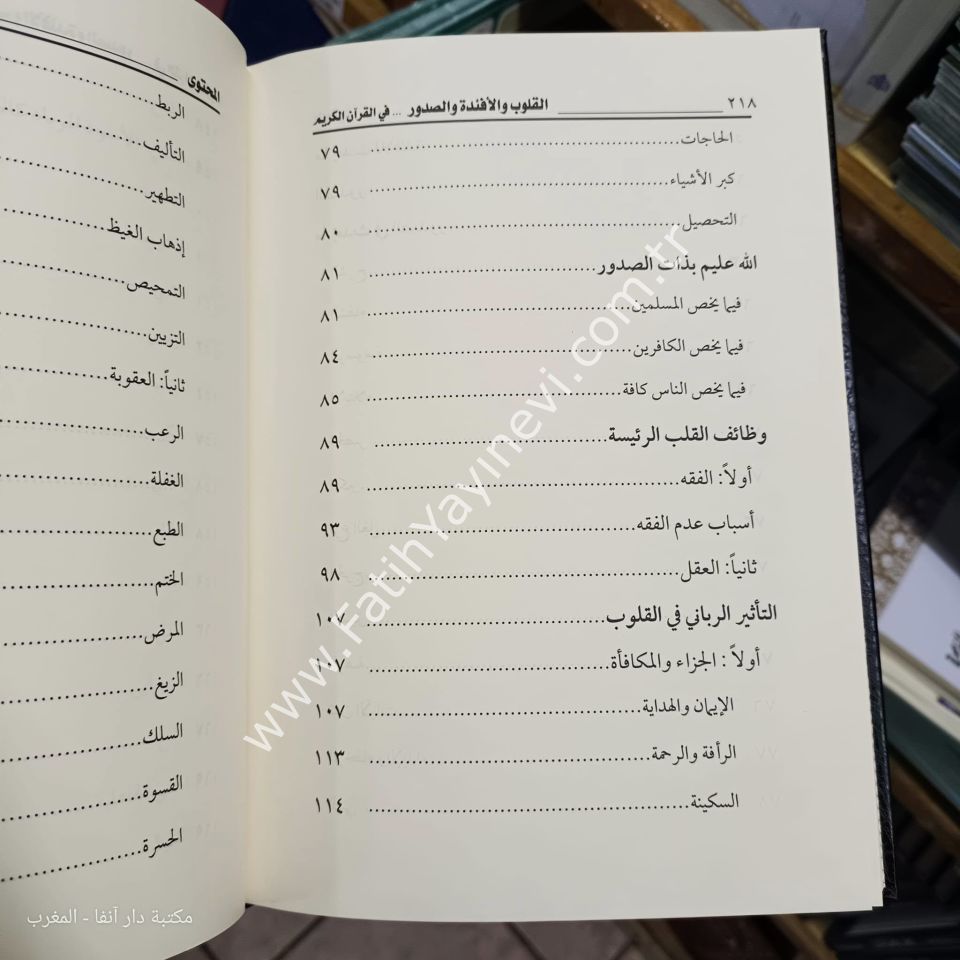 ٢١٨ القلوب والأفئدة والصدور ... في القرآن الكريم
الحاجات ٧٩
كبر الأشياء ٧٩
التحصيل ٨٠
الله عليم بذات الصدور ٨١
فيما يخص المسلمين ٨١
فيما يخص الكافرين ٨٤
فيما يخص الناس كافة ٨٥
وظائف القلب الرئيسة ٨٩
أولاً: الفقه ٨٩
أسباب عدم الفقه ٩٣
ثانياً: العقل ٩٨
التأثير الرباني في القلوب ١٠٧
أولاً : الجزاء والمكافأة ١٠٧
الإيمان والهداية ١٠٧
الرأفة والرحمة ١١٣
السكينة ١١٤
المحتوى
الربط
التأليف
التطهير
إذهاب الغيظ
التمحيص
التزيين
ثانياً: العقوبة
الرعب
الغفلة
الطبع
الختم
المرض
الزيغ
السلك
القسوة
الحسرة
www.FatihYayinevi.com.tr
مكتبة دار آنفا - المغرب